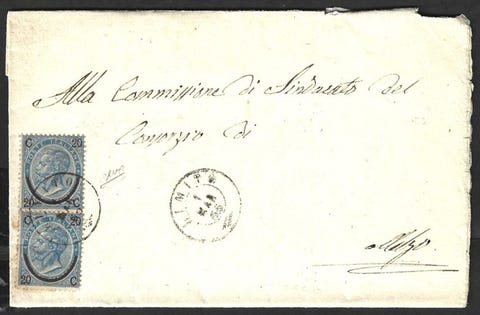 Alla Commissione di Sindacato del
Consorzio di
Melzo
C 20
20 C
C 20
20 C
LIMITO
1
MAR
66